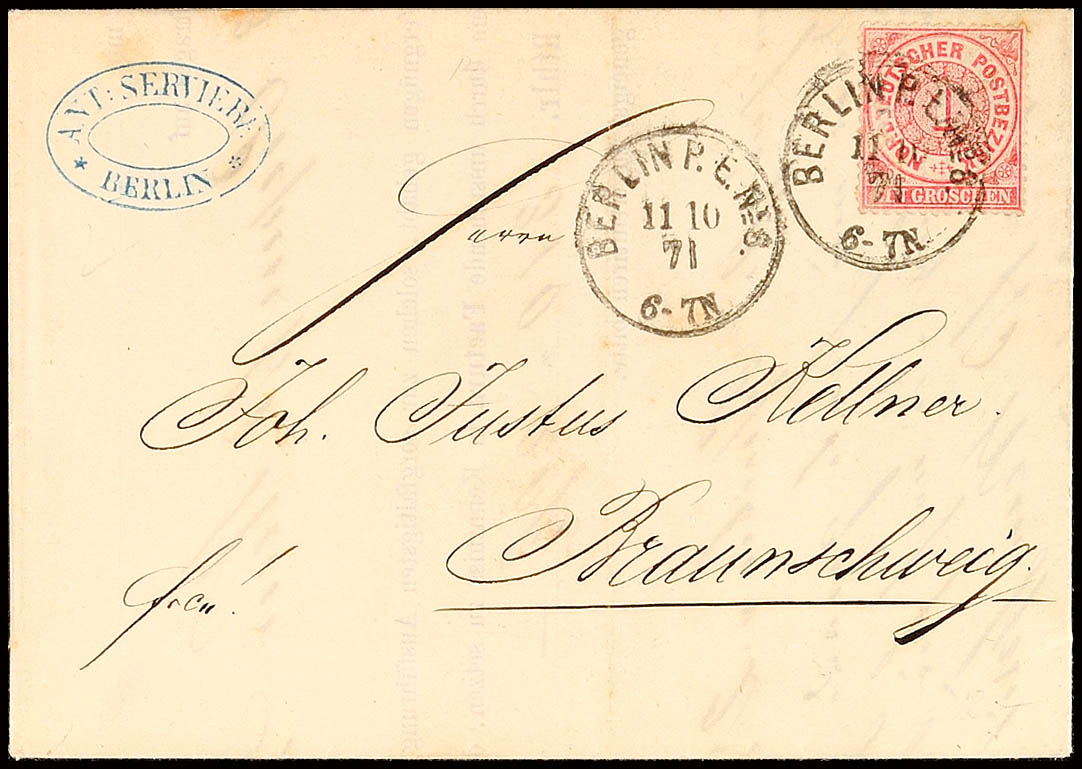 ANT: SERVIERE
* BERLIN *
NORDDEUTSCHER POSTBEZIRK
1
EIN GROSCHEN
BERLIN P. E. No 8.
11 10
71
6-7N
BERLIN P. E. No 8.
11 10
71
6-7N
Herrn
Joh. Justus Kellner.
Braunschweig.
frco.